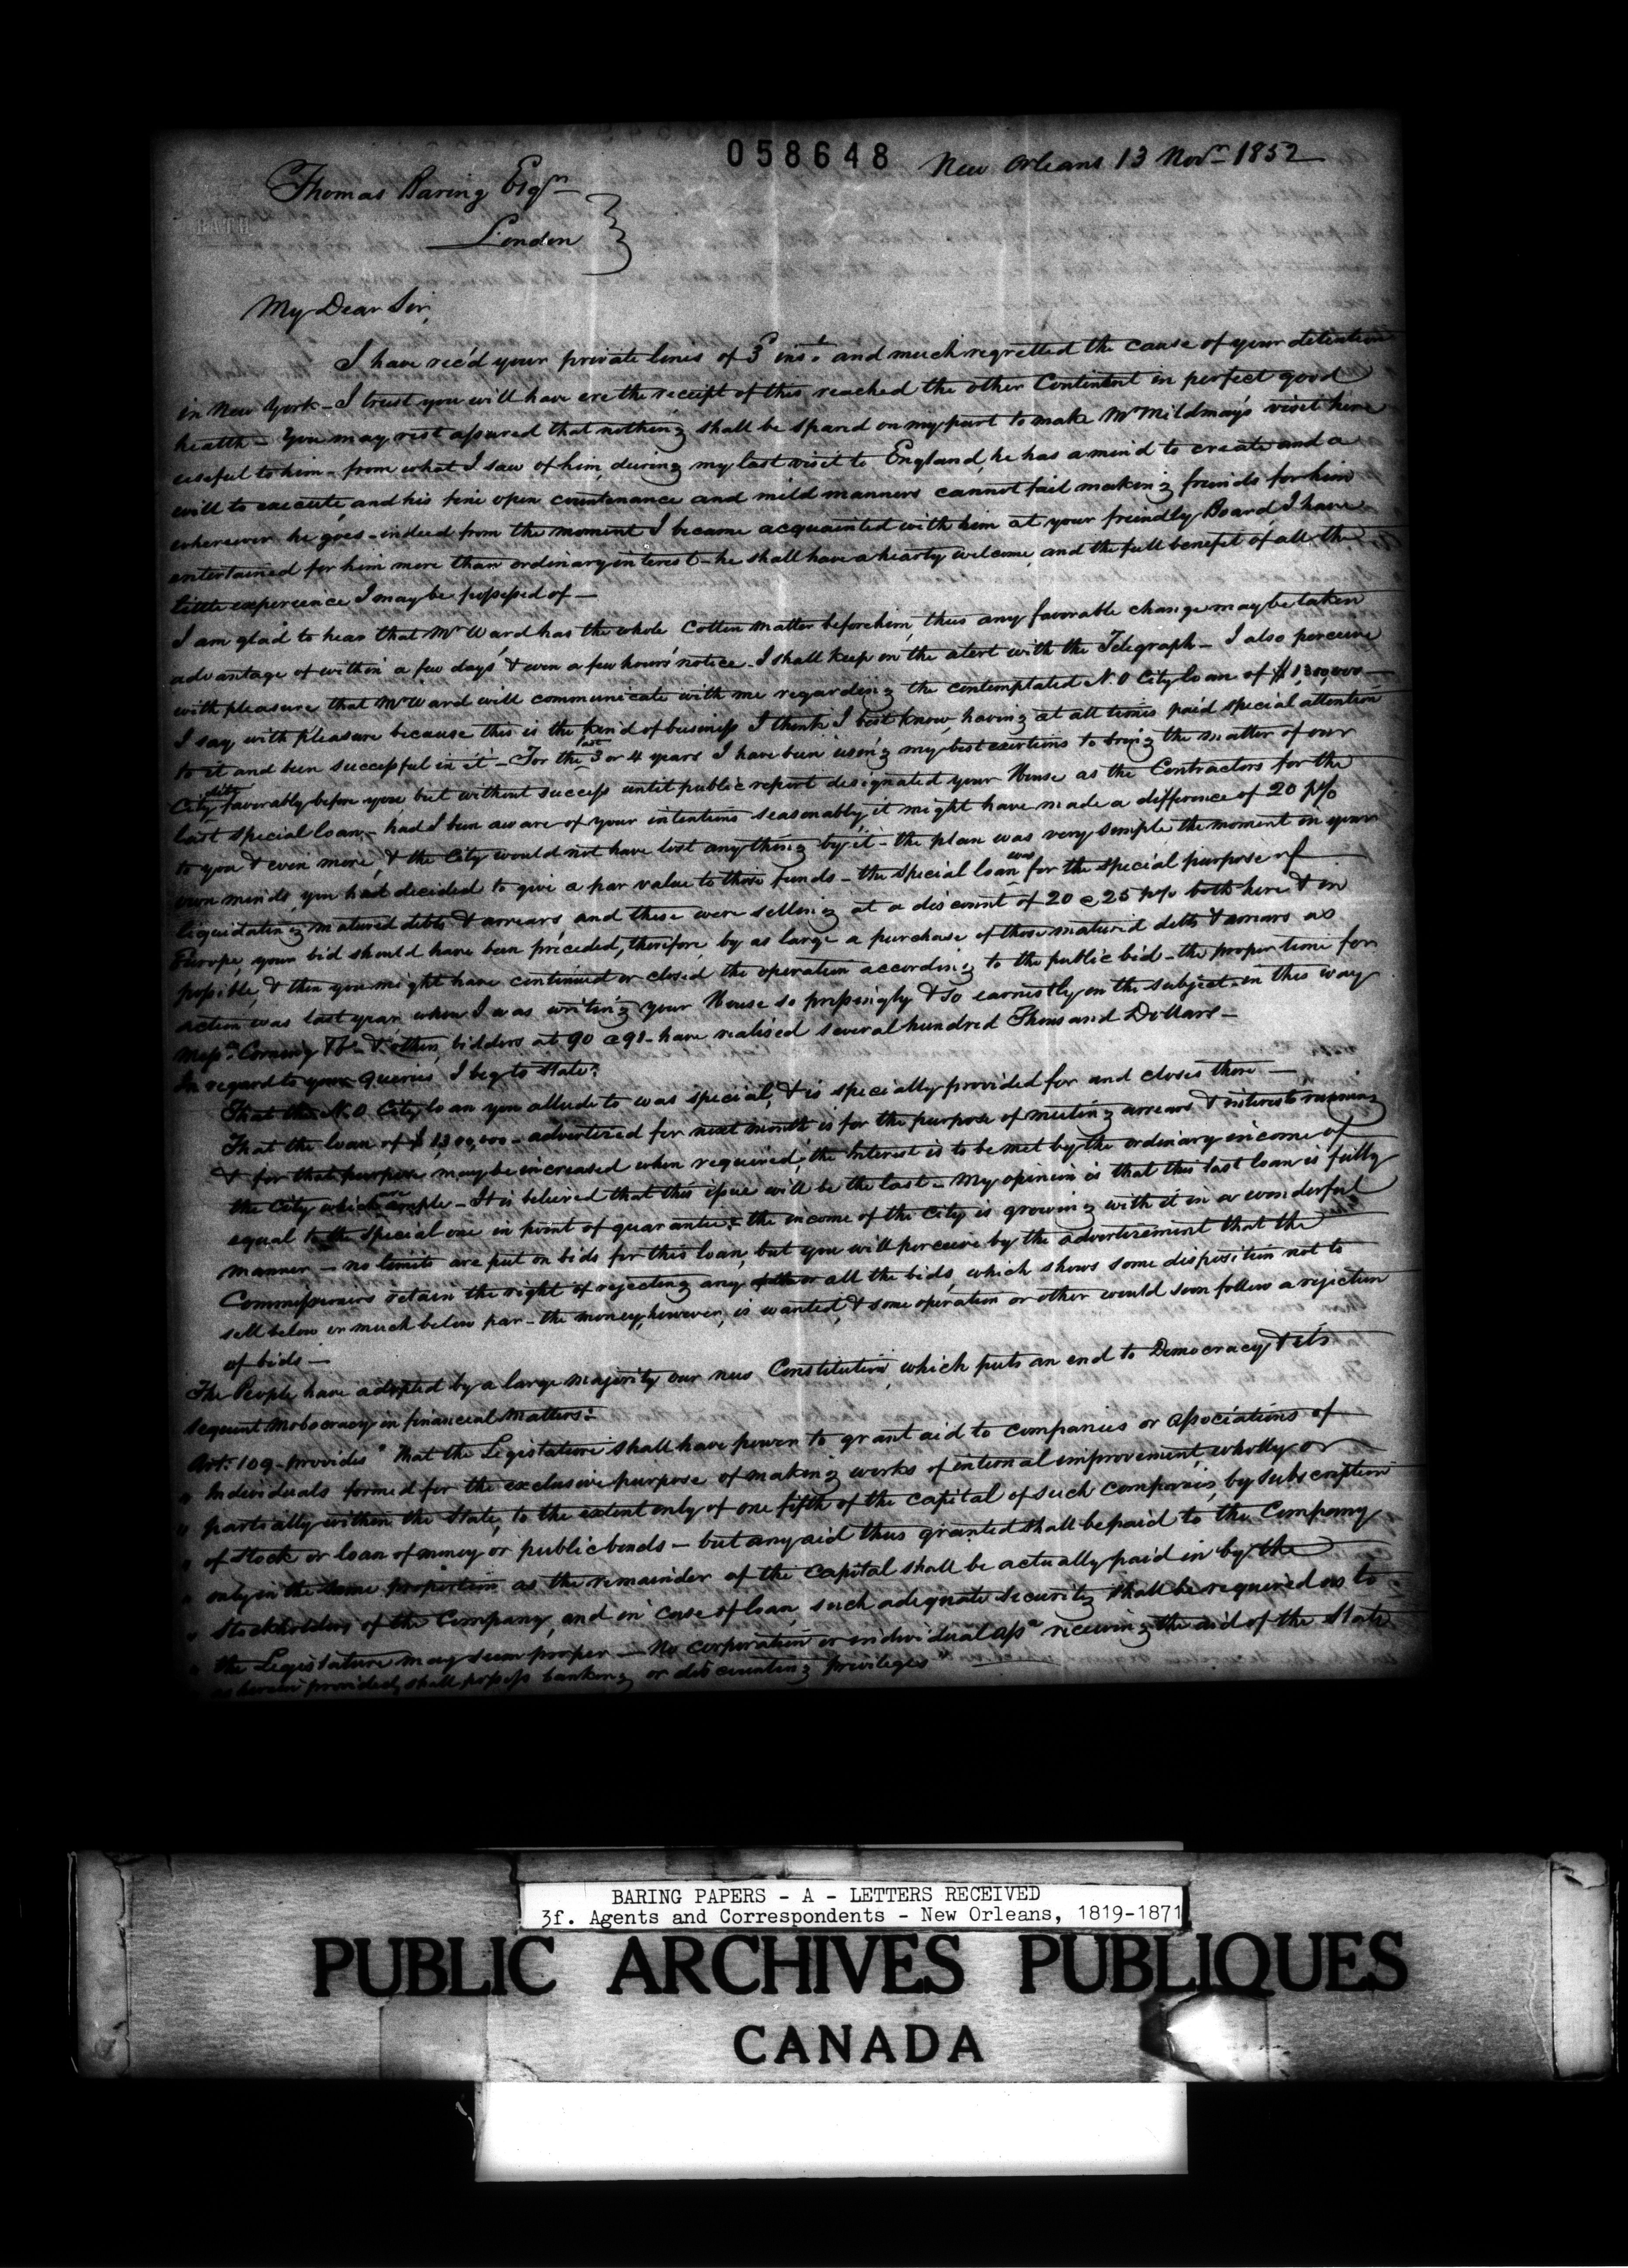 058648
New Orleans 13 Novr 1852
Thomas Baring Esqr
London
BATH
My Dear Sir,
I have rec'd your private lines of 3d inst. and much regretted the cause of your detention
in New York - I trust you will have ere the receipt of this reached the other Continent in perfect good
health - You may rest assured that nothing shall be spared on my part to make Mr Mildmay's visit here
useful to him - from what I saw of him, during my last visit to England, he has a mind to create and a
will to execute, and his fine open countenance and mild manners cannot fail making friends for him
wherever he goes - indeed from the moment I became acquainted with him at your friendly Board, I have
entertained for him more than ordinary interest - he shall have a hearty welcome, and the full benefit of all the
little experience I may be possessed of -
I am glad to hear that Mr Ward has the whole Cotton matter before him, thus any favorable change may be taken
advantage of within a few days' & even a few hours' notice - I shall keep on the alert with the Telegraph - I also perceive
with pleasure that Mr Ward will communicate with me regarding the contemplated N.O City loan of $1,300,000 -
I say with pleasure because this is the kind of business I think I best know, having at all times paid special attention
to it and been successful in it - For the last 3 or 4 years I have been using my best exertions to bring the matter of our
City favorably before you but without success until public report designated your House as the Contractors for the
last special loan - had I been aware of your intentions seasonably, it might have made a difference of 20 p%
to you & even more, & the City would not have lost anything by it - the plan was very simple the moment in your
own minds you had decided to give a par value to those funds - the special loan was for the special purpose of
liquidating matured debts & arrears, and these were selling at a discount of 20 @ 25 p% both here & in
Europe, your bid should have been preceded, therefore, by as large a purchase of those matured debts & arrears as
possible, & then you might have continued or closed the operation according to the public bid - the proper time for
action was last year when I was writing your House so pressingly & so earnestly on the subject - in this way
Messrs Corning & Co - & other bidders at 90 @ 91 - have realised several hundred Thousand Dollars -
In regard to your Queries I beg to state:
That the N.O. City loan you allude to was special, & is specially provided for and closes there -
That the loan of $1,300,000 - advertized for next month is for the purpose of meeting arrears & interest running
& for that purpose may be increased when required; the Interest is to be met by the ordinary income of
the City which are ample - It is believed that this issue will be the last - My opinion is that this last loan is fully
equal to the Special one in point of guarantee: the income of the City is growing with it in a wonderful
manner - no limits are put on bids for this loan, but you will perceive by the advertizement that the
Commissioners retain the right of rejecting any or all the bids, which shows some disposition not to
sell below or much below par - the money, however, is wanted, & some operation or other would soon follow a rejection
of bids -
The People have adopted by a large majority our new Constitution, which puts an end to Democracy & its
sequent Mobocracy in financial Matters:
Art: 109 - provides "That the Legislature shall have power to grant aid to companies or associations of
" Individuals formed for the exclusive purpose of making works of internal improvement, wholly or
" partially within the State, to the extent only of one fifth of the capital of such companies, by subscription
" of stock or loan of money or public bonds - but any aid thus granted shall be paid to the Company
" only in the same proportion as the remainder of the capital shall be actually paid in by the
" Stockholders of the Company, and in case of loan, such adequate security shall be required as to
" the Legislature may seem proper - No corporation or individual assn receiving the aid of the State
as herein provided, shall possess banking or discounting privileges" -
BARING PAPERS - A - LETTERS RECEIVED
3f. Agents and Correspondents - New Orleans, 1819-1871
PUBLIC ARCHIVES PUBLIQUES
CANADA